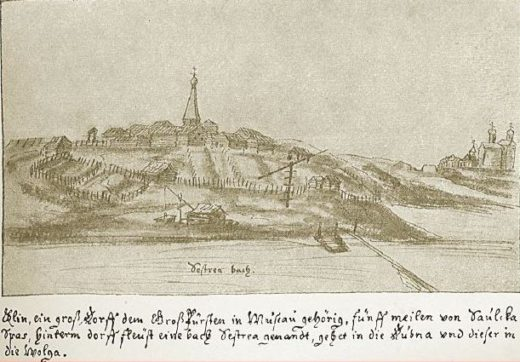 Sestrea bach.
Klin, ein groß Dorff dem Groß Fürsten in Muscau gehörig, fünff meilen von Saulika
Spas, hinterm dorff fleust eine bach Sestrea genandt, gehet in die Dubna und dieser in
die Wolga.